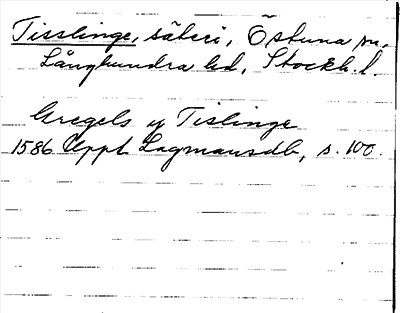 Tisslinge, säteri, Östuna sn,
Långhundra hd, Stockh. l.
Gregels y Tislinge
1586 Uppl. Lagmansdb, s. 100.